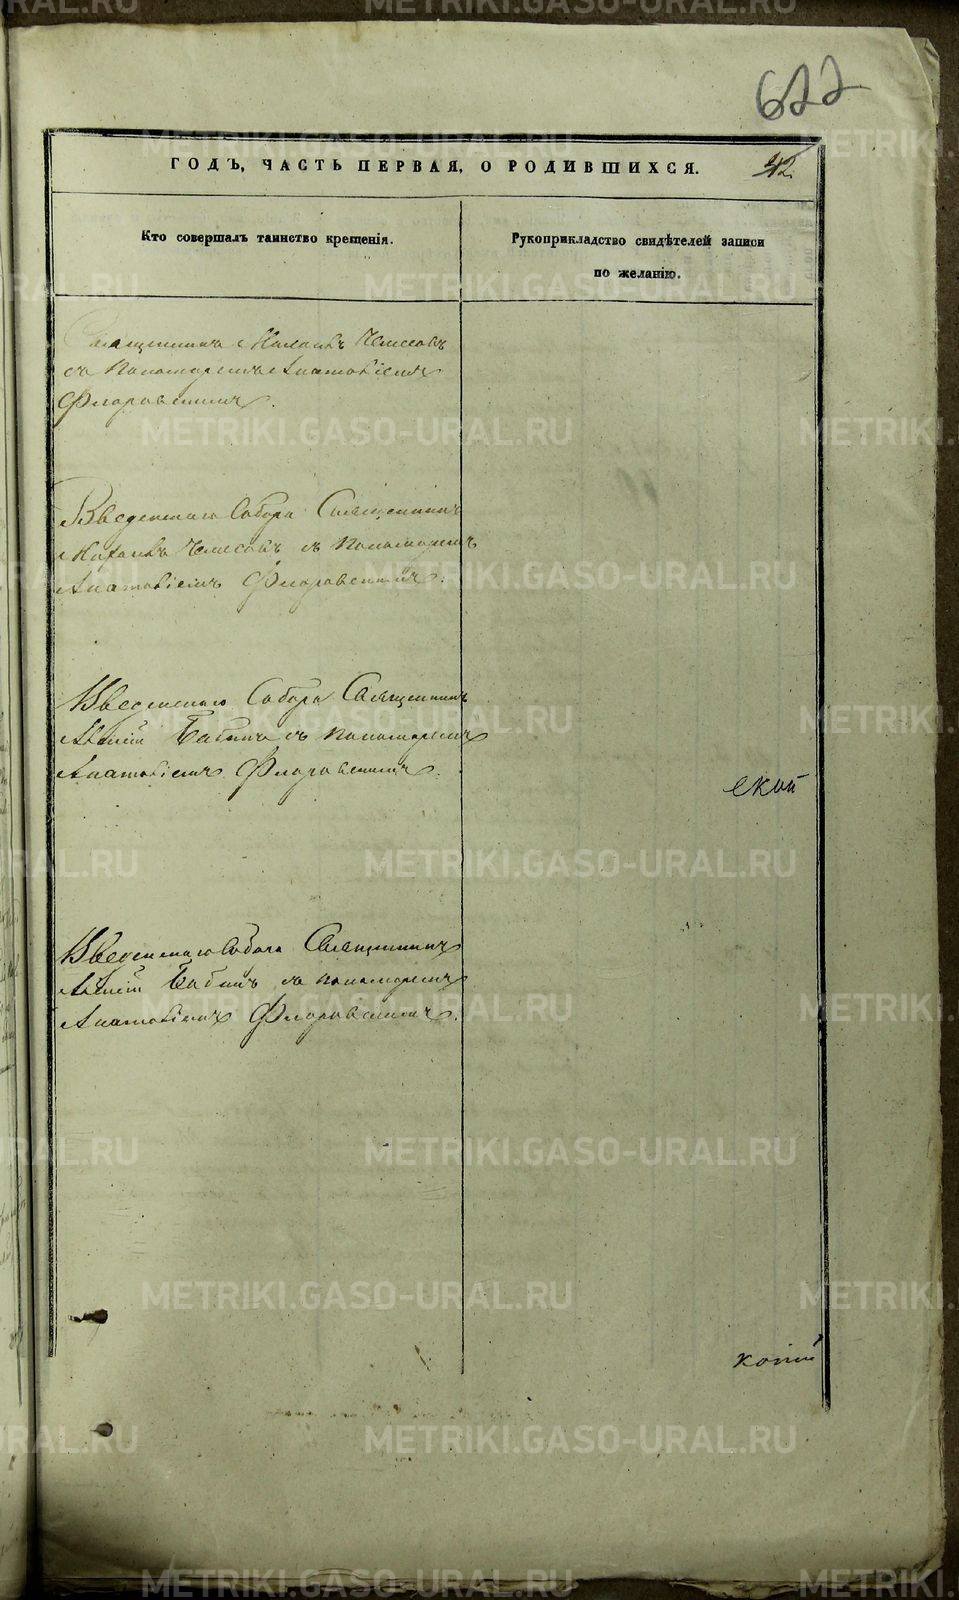 622
ГОДЪ, ЧАСТЬ ПЕРВАЯ, О РОДИВШИХСЯ.
42.
Кто совершалъ таинство крещенія.
Рукоприкладство свидѣтелей записи
по желанію.
Священникъ
съ Пономаремъ Анатоліемъ
Флоровскимъ.
Введенскаго Собора Священникъ
съ Пономаремъ
Анатоліемъ Флоровскимъ.
Введенскаго Собора Священникъ
Бабинъ съ Пономаремъ
Анатоліемъ Флоровскимъ.
ской
Введенскаго Собора Священникъ
Бабинъ съ пономаремъ
Анатоліемъ Флоровскимъ.
копій
METRIKI.GASO-URAL.RU